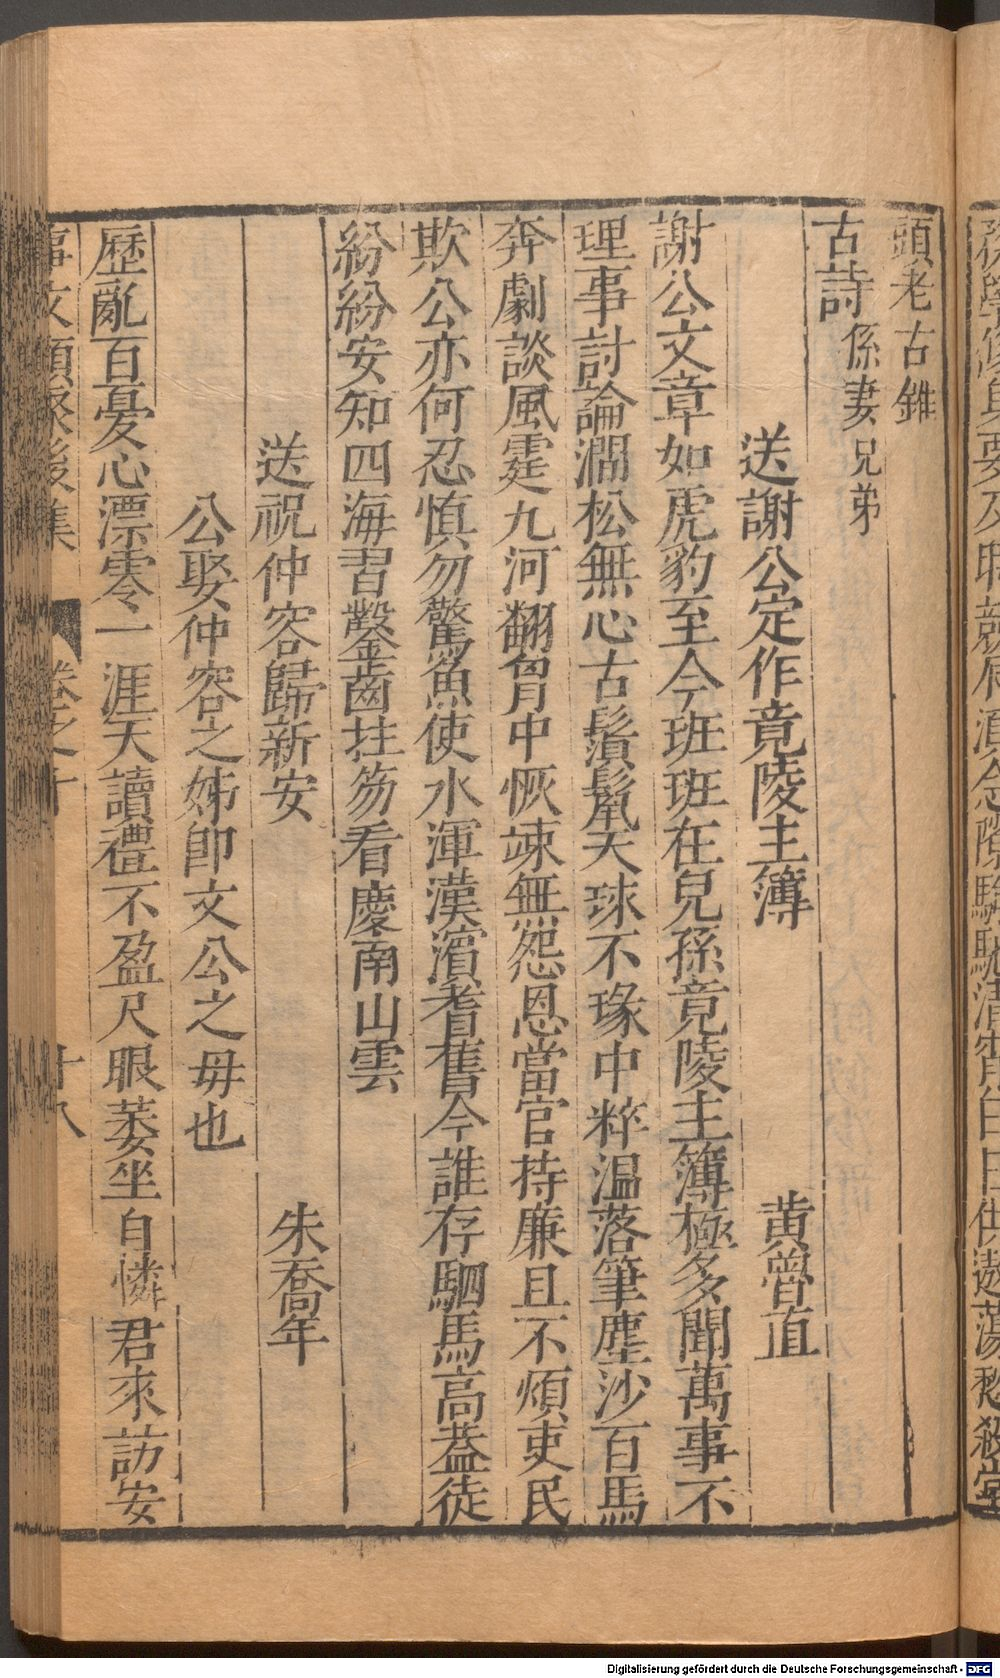 頭老古錐
古詩 係妻兄弟
送謝公定作竟陵主簿 黄魯直
謝公文章如虎豹至今班班在兒孫竟陵主簿極多聞萬事不
理事討論澗松無心古鬚鬣天球不瑑中粹温落筆塵沙百馬
奔劇談風霆九河翻胷中恢踈無怨恩當官持廉且不煩吏民
欺公亦何忍慎勿驚魚使水渾漢濵耆舊今誰存駟馬高葢徒
紛紛安知四海習鑿齒拄笏看慶南山雲
送祝仲容歸新安 朱喬年
公娶仲容之姊卽文公之毋也
歷亂百憂心漂零一涯天讀禮不盈尺眼萎坐自憐君來訪安
事文類聚後集 卷之十 十八
Digitalisierung gefördert durch die Deutsche Forschungsgemeinschaft - DFG